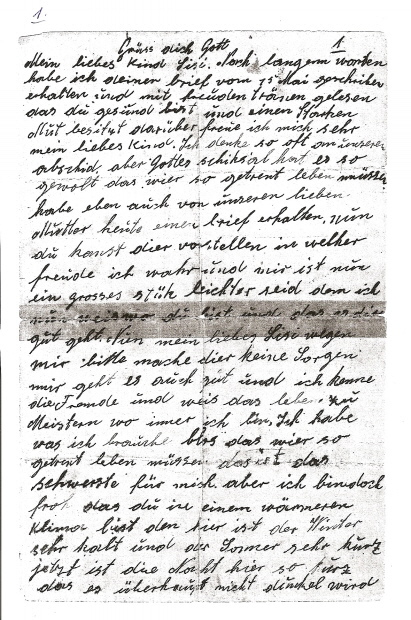 1.
Grüss dich Gott 1.
Mein liebes Kind Lisi. Nach langem warten
habe ich deinen brief vom 15 Mai geschriben
erhalten und mit freuden tränen gelesen
das du gesund bist und einen starken
Mut besitzt darüber freue ich mich sehr
mein liebes Kind. Ich denke so oft an unseren
abschid, aber Gottes schiksal hat es so
gewolt das wier so getrent leben müssen
habe eben auch von unseren lieben
Mutter heute einen brief erhalten, nun
du kanst dier vorstellen in welher
freude ich wahr und mir ist nun
ein grosses stük leichter seid dem ich
nun weis wo du bist und das es dir
gut geht. Nun mein liebes Lisi wegen
mir bitte mache dier keine Sorgen
mir geht es auch gut und ich kenne
die Fremde und weis das leben zu
Meistern wo imer ich bin. Ich habe
was ich brauche blos das wier so
getrent leben müssen das ist das
schwerste für mich aber ich bin doch
froh das du in einem wärmeren
Klima bist den hier ist der Winter
sehr kalt und der Sommer sehr kurz
jetzt ist die Nacht hier so kurz
das es überhaupt nicht dunkel wird